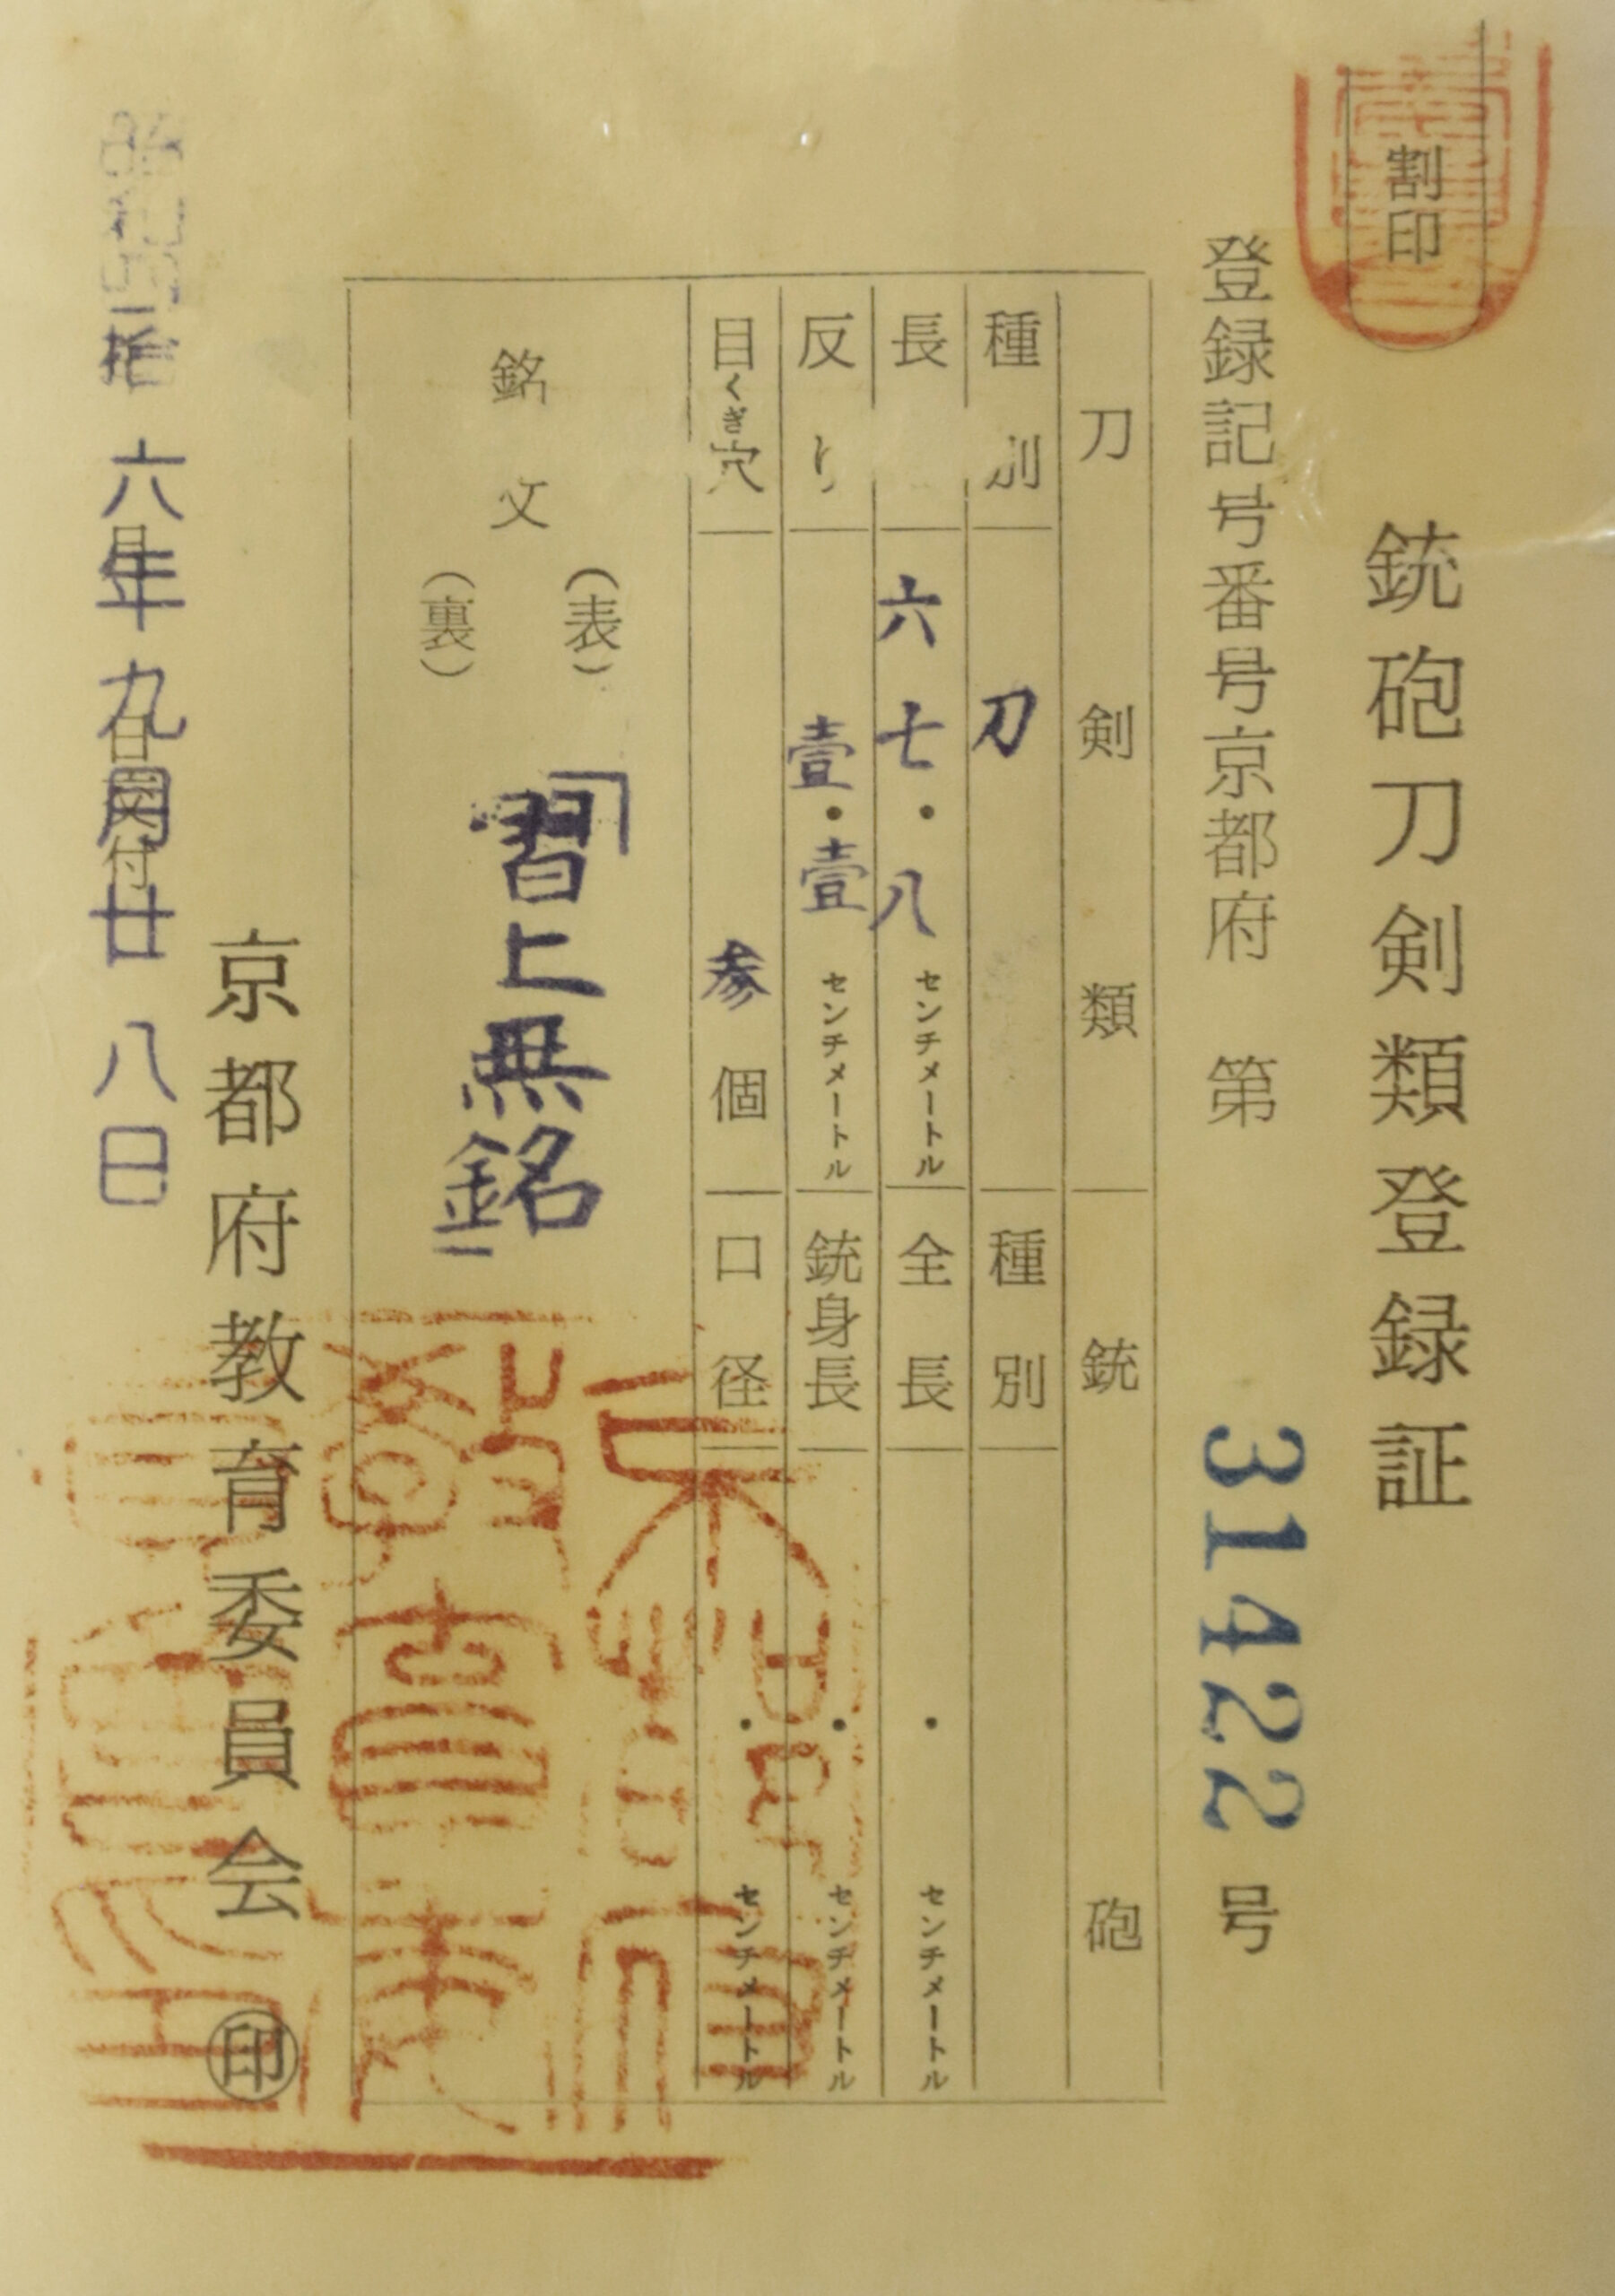 割印
銃砲刀剣類登録証
登録記号番号京都府 第 31422 号
刀剣類 銃砲
種別 刀 種別
長 六七・八 センチメートル 全長 ・ センチメートル
反り 壹・壹 センチメートル 銃身長 ・ センチメートル
目くぎ穴 参 個 口径 ・ センチメートル
銘文 (表) 「摺上無銘」
(裏)
京都府教育委員会 ㊞
昭和四拾六年九月廿八日
月日交付